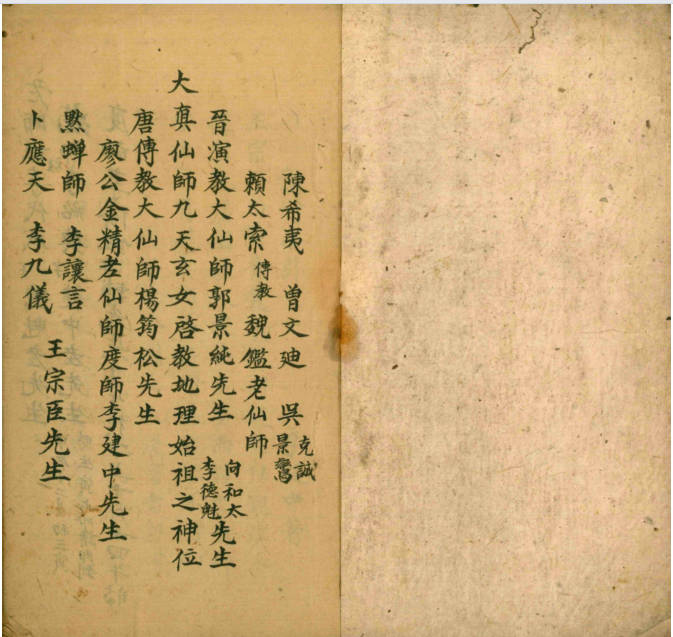 陳希夷 曾文迪 吳克誠景鸞
賴太索傳教 魏鑑老仙師
晉演教大仙師郭景純先生 向和太李德魁先生
大真仙師九天玄女啓教地理始祖之神位
唐傳教大仙師楊筠松先生
廖公金精老仙師度師李建中先生
黙蟬師 李讓言 王宗臣先生
卜應天 李九儀